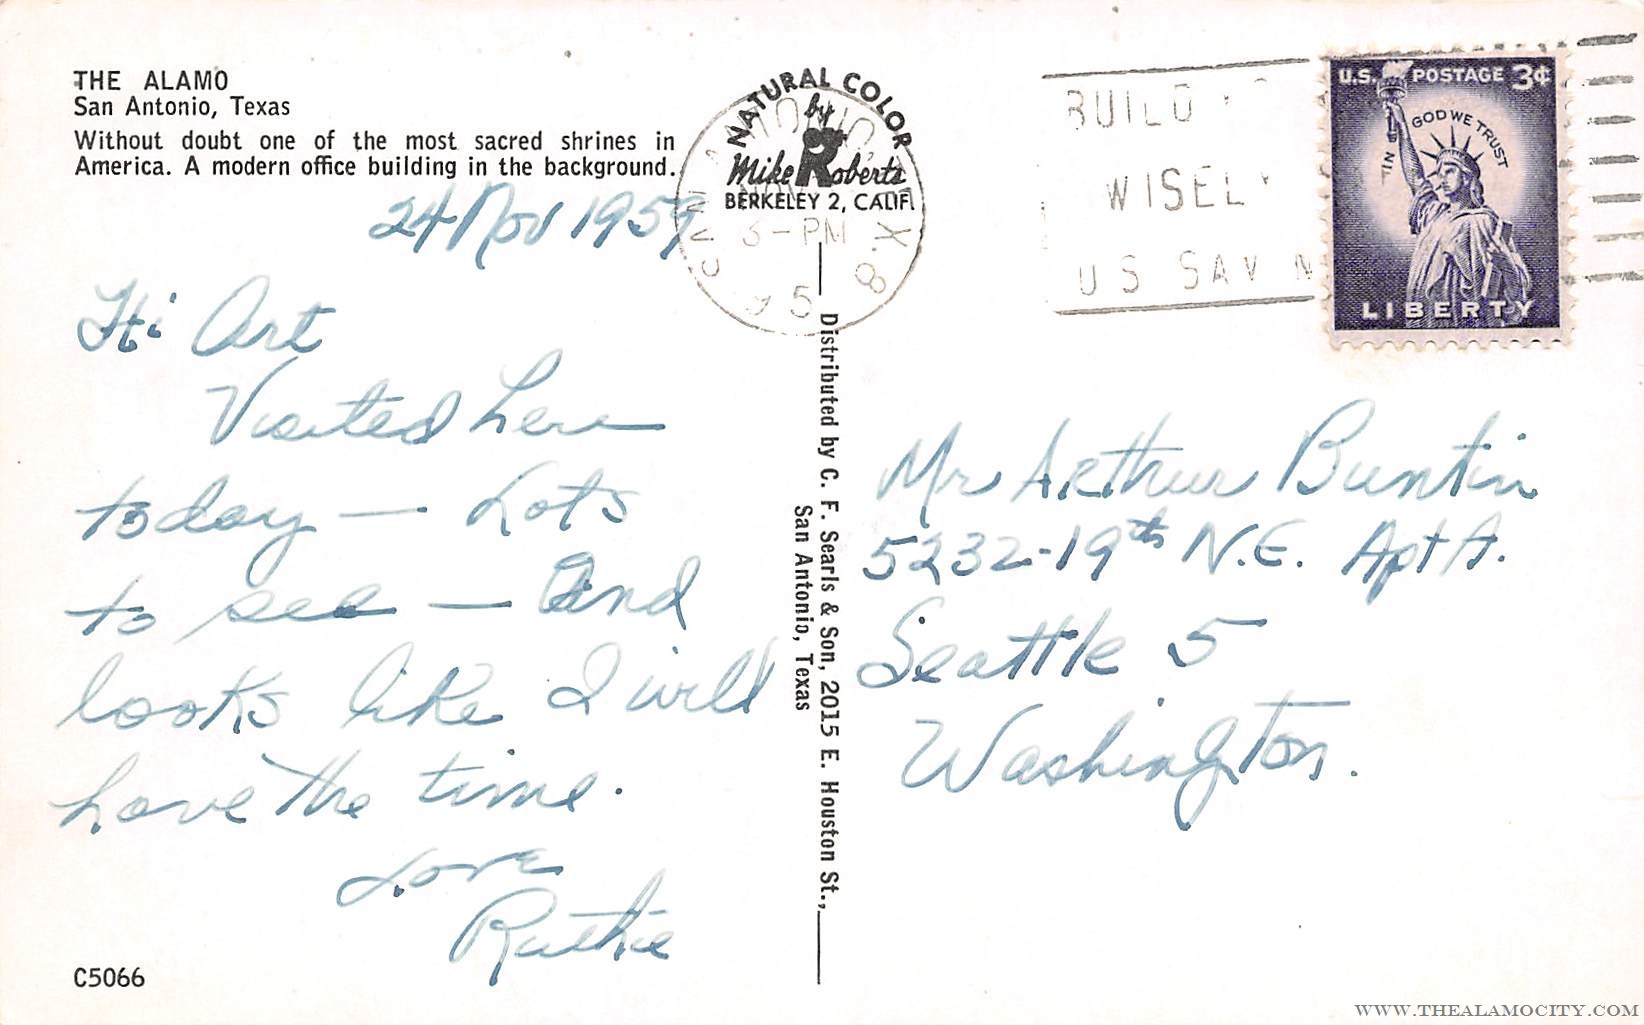 THE ALAMO
San Antonio, Texas
Without doubt one of the most sacred shrines in
America. A modern office building in the background.
24 Nov 1959
Hi Art
Visited here
today — Lots
to see — And
looks like I will
have the time.
Love
Ruthie
C5066
NATURAL COLOR
by
Mike Roberts
BERKELEY 2, CALIF.
NOV
3-PM
Distributed by C. F. Searls & Son, 2015 E. Houston St.,
San Antonio, Texas
BUILD
WISELY
US SAVIN
U.S. POSTAGE 3¢
IN GOD WE TRUST
LIBERTY
Mr Arthur Buntin
5232-19th N.E. Apt A.
Seattle 5
Washington.
WWW.THEALAMOCITY.COM